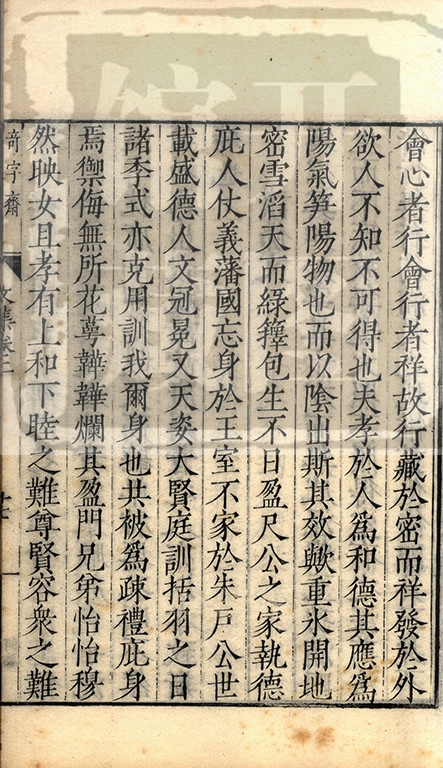 會心者行會行者祥故行藏於密而祥發於外
欲人不知不可得也夫孝於人爲和德其應爲
陽氣笋陽物也而以陰出斯其效歟重氷開地
密雪滔天而綠籜包生不日盈尺公之家執德
庇人仗義藩國忘身於王室不家於朱戸公世
載盛德人文冠冕又天姿大賢庭訓括羽之日
諸季式亦克用訓我爾身也共被爲疎禮庇身
焉禦侮無所花萼韡韡爛其盈門兄弟怡怡穆
然映女且孝有上和下睦之難尊賢容衆之難
奇字齋
文集卷二